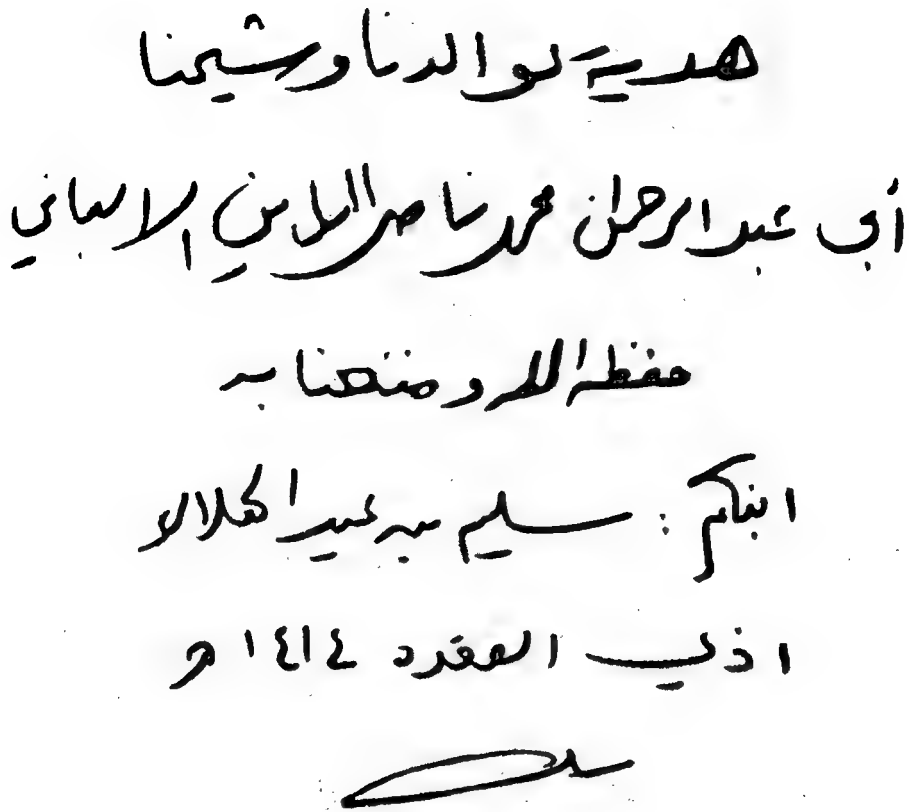 هدية لوالدنا وشيخنا
أبي عبد الرحمن محمد ناصر الدين الالباني
حفظه الله ومتعنا به
ابنكم : سليم بن عيد الهلالي
١ ذي القعده ١٤١٤ هـ